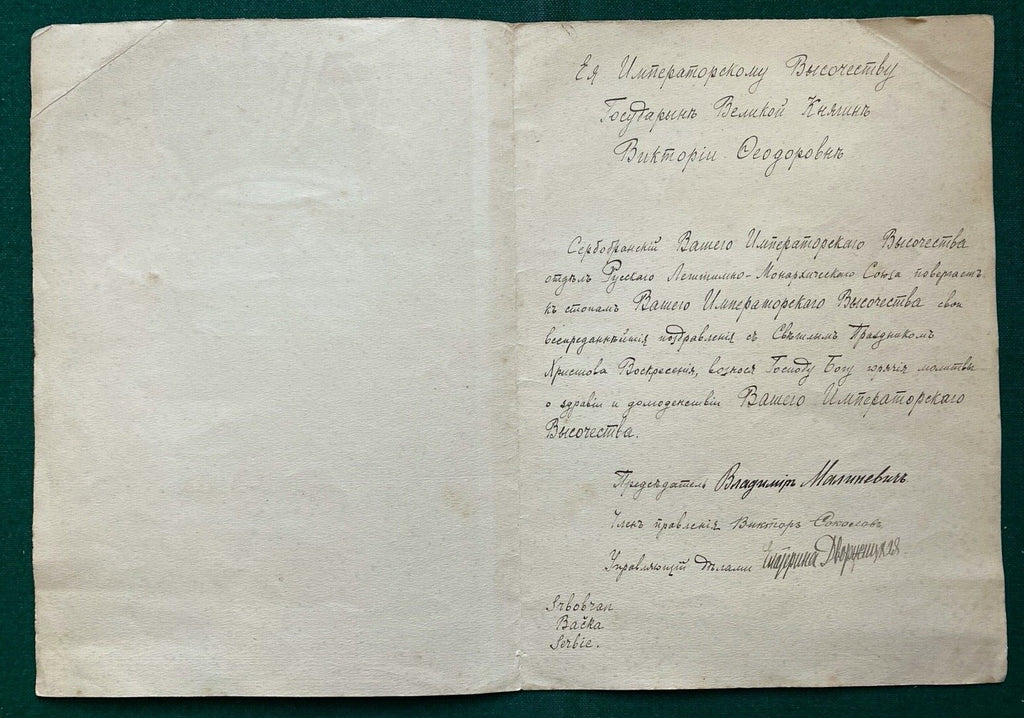 Ея Императорскому Высочеству
Государынѣ Великой Княгинѣ
Викторіи Ѳеодоровнѣ
Сербобранскій Вашего Императорскаго Высочества
отдѣлъ Русскаго Легитимно-Монархическаго Союза повергаетъ
къ стопамъ Вашего Императорскаго Высочества свои
всепреданнѣйшія поздравленія съ Свѣтлымъ Праздникомъ
Христова Воскресенія, вознося Господу Богу горячія молитвы
о здравіи и долгоденствіи Вашего Императорскаго
Высочества.
Предсѣдатель Владиміръ Малиневичъ
Членъ правленія Викторъ Соколовъ
Управляющій дѣлами Екатерина
Srbobran
Bačka
Serbie.